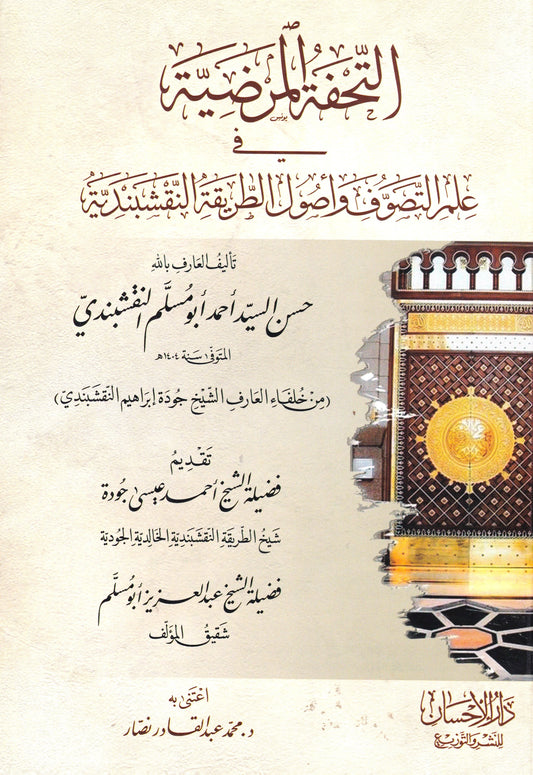 التحفة المرضية
في
علم التصوف وأصول الطريقة النقشبندية
تأليف العارف بالله
حسن السيد أحمد أبو مسلم النقشبندي
المتوفى سنة ١٤٠٤هـ
(من خلفاء العارف الشيخ جودة إبراهيم النقشبندي)
تقديم
فضيلة الشيخ أحمد عيسى جودة
شيخ الطريقة النقشبندية الخالدية الجودية
فضيلة الشيخ عبد العزيز أبو مسلم
شقيق المؤلف
اعتنى به
د. محمد عبد القادر نصار
دار الإحسان
للنشر والتوزيع